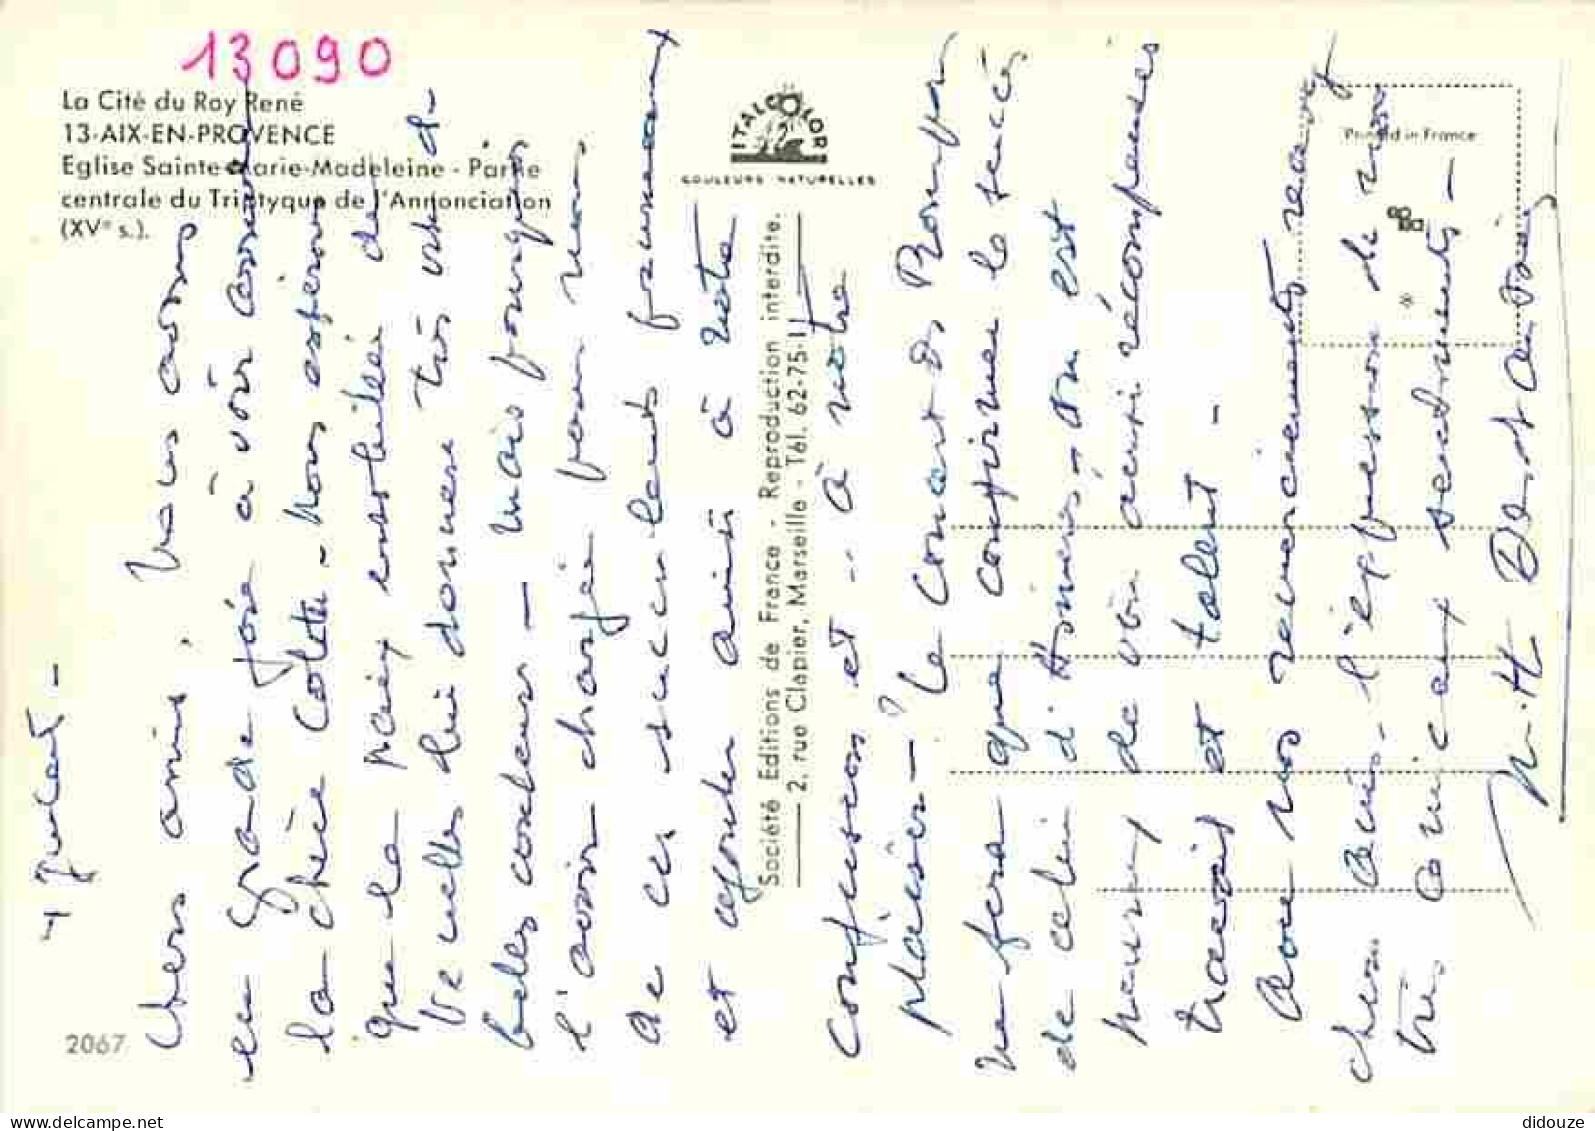 13090
La Cité du Roy René
13-AIX-EN-PROVENCE
Eglise Sainte-Marie-Madeleine - Partie
centrale du Triptyque de l'Annonciation
(XVe s.).
ITALCOLOR
COULEURS NATURELLES
Printed in France
Société Editions de France - Reproduction interdite.
2, rue Clapier, Marseille - Tél. 62-75-11
2067
4 Juillet -
Chers amis, Nous avons
eu grande joie à voir
la chère Colette - Nous espérons
que la paix de
Vercelles lui donnera très vite de
belles couleurs - mais pourquoi
l'avoir chargée pour nous
de ces succulents
et ajouter ainsi à notre
confusion et .. à notre
plaisir - ? Le
ne fera que confirmer le succès
de celui d' - On est
heureux de voir ainsi récompensés
travail et talent -
Avec nos remerciements recevez
chers amis, l'expression de nos
très amicaux sentiments -